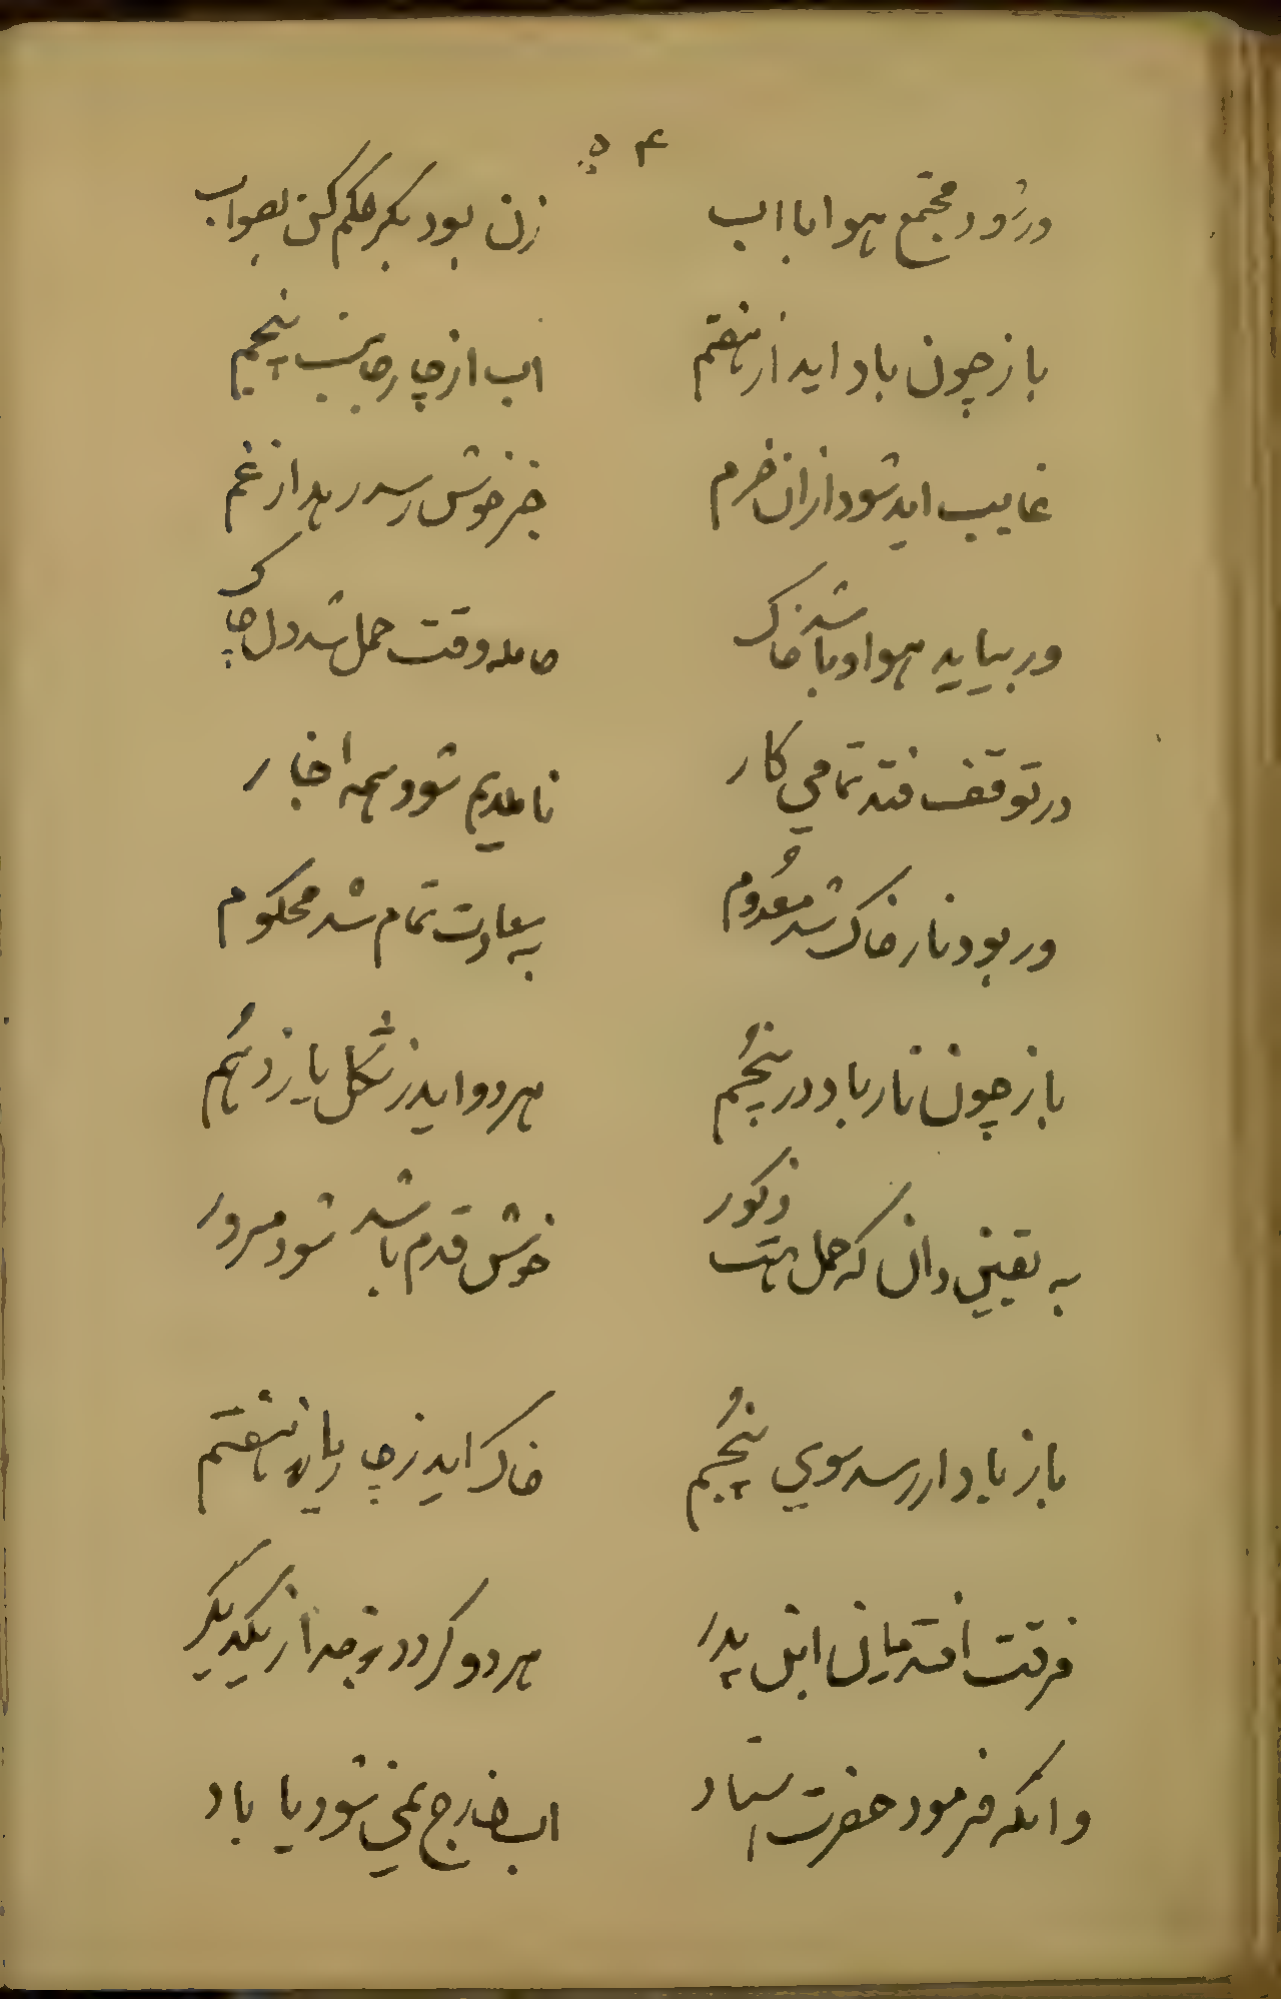 ۵۴
در رود مجتمع هوا با اب
زن بود بکر حکم کن بصواب
باز چون باد اید از هفتم
اب از چار جانب پنجم
غایب اید شود ازان خرم
خبر خوش رسد رهد از غم
ور بیاید هوا و باشد خاک
حامله وقت حمل شد دل چاک
در توقف فتد تمامی کار
شود همه اخبار
ور بود نار خاک شد معدوم
به تمام شد محکوم
باز چون نار باد در پنجم
هر دو اید ز شکل یازدهم
به یقین دان که حمل هست ذکور
خوش قدم باشد شود مسرور
باز باد ار رسد سوی پنجم
خاک اید ز چار یا هفتم
فرقت افتد میان ابن پدر
هر دو گردند جدا از یکدیگر
وانکه فرمود حضرت استاد
اب خارج نمی شود یا باد